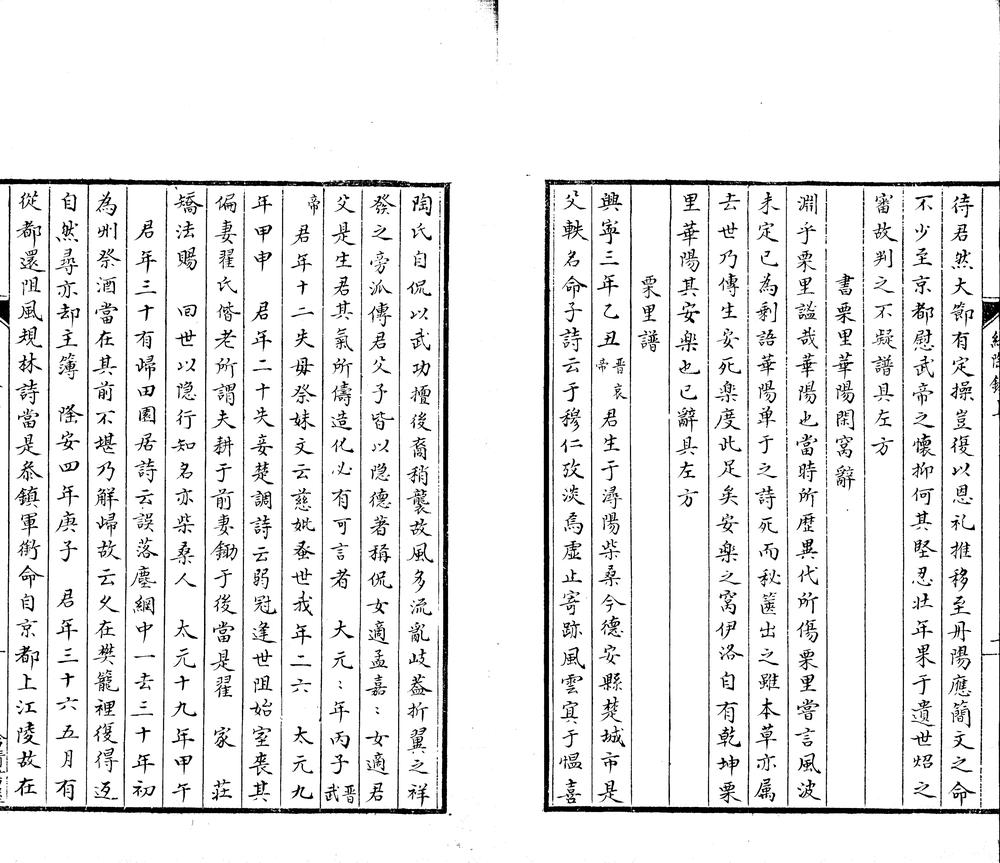 待君然大節有定操豈復以恩礼推移至丹陽應簡文之命
不少至京都慰武帝之懷抑何其堅忍壮年果于遺世炤之
審故判之不疑譜具左方
書栗里華陽閑窩辭
淵乎栗里謐哉華陽也當時所歷異代所傷栗里嘗言風波
未定已為剩語華陽单于之詩死而秘篋出之雖本草亦属
去世乃傳生安死樂度此足矣安樂之窩伊洛自有乾坤栗
里華陽其安樂也已辭具左方
栗里譜
興寧三年乙丑晋哀帝君生于潯陽柴桑今德安縣楚城市是
父軼名命子詩云于穆仁攷淡焉虚止寄跡風雲寘于愠喜
陶氏自侃以武功擅後裔稍襲故風多流亂岐葢折翼之祥
發之旁派傳君父子皆以隐德著稱侃女適孟嘉:女適君
父是生君其氣所儔造化必有可言者 大元:年丙子晋武
帝 君年十二失毋祭妹文云慈妣蚤世我年二六 太元九
年甲申 君年二十失妾楚調詩云弱冠逢世阻始室喪其
偏妻翟氏偕老所謂夫耕于前妻鋤于後當是翟 家 莊
矯法賜 回世以隐行知名亦柴桑人 太元十九年甲午
君年三十有歸田園居詩云誤落塵網中一去三十年初
為州祭酒當在其前不堪乃觧歸故云久在樊籠裡復得返
自然尋亦却主簿 隆安四年庚子 君年三十六五月有
從都還阻風規林詩當是叅鎮軍銜命自京都上江陵故在